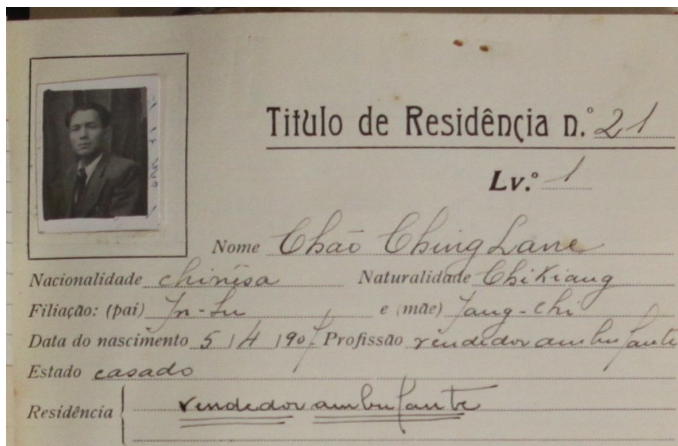 Titulo de Residência n.º 21
Lv.º 1
Nome Chão Ching Lane
Nacionalidade chinêsa Naturalidade ChiKiang
Filiação: (pai) In-Lu e (mãe) Jang-Chi
Data do nascimento 5 / 4 / 907 Profissão vendedor ambulante
Estado casado
Residência vendedor ambulante